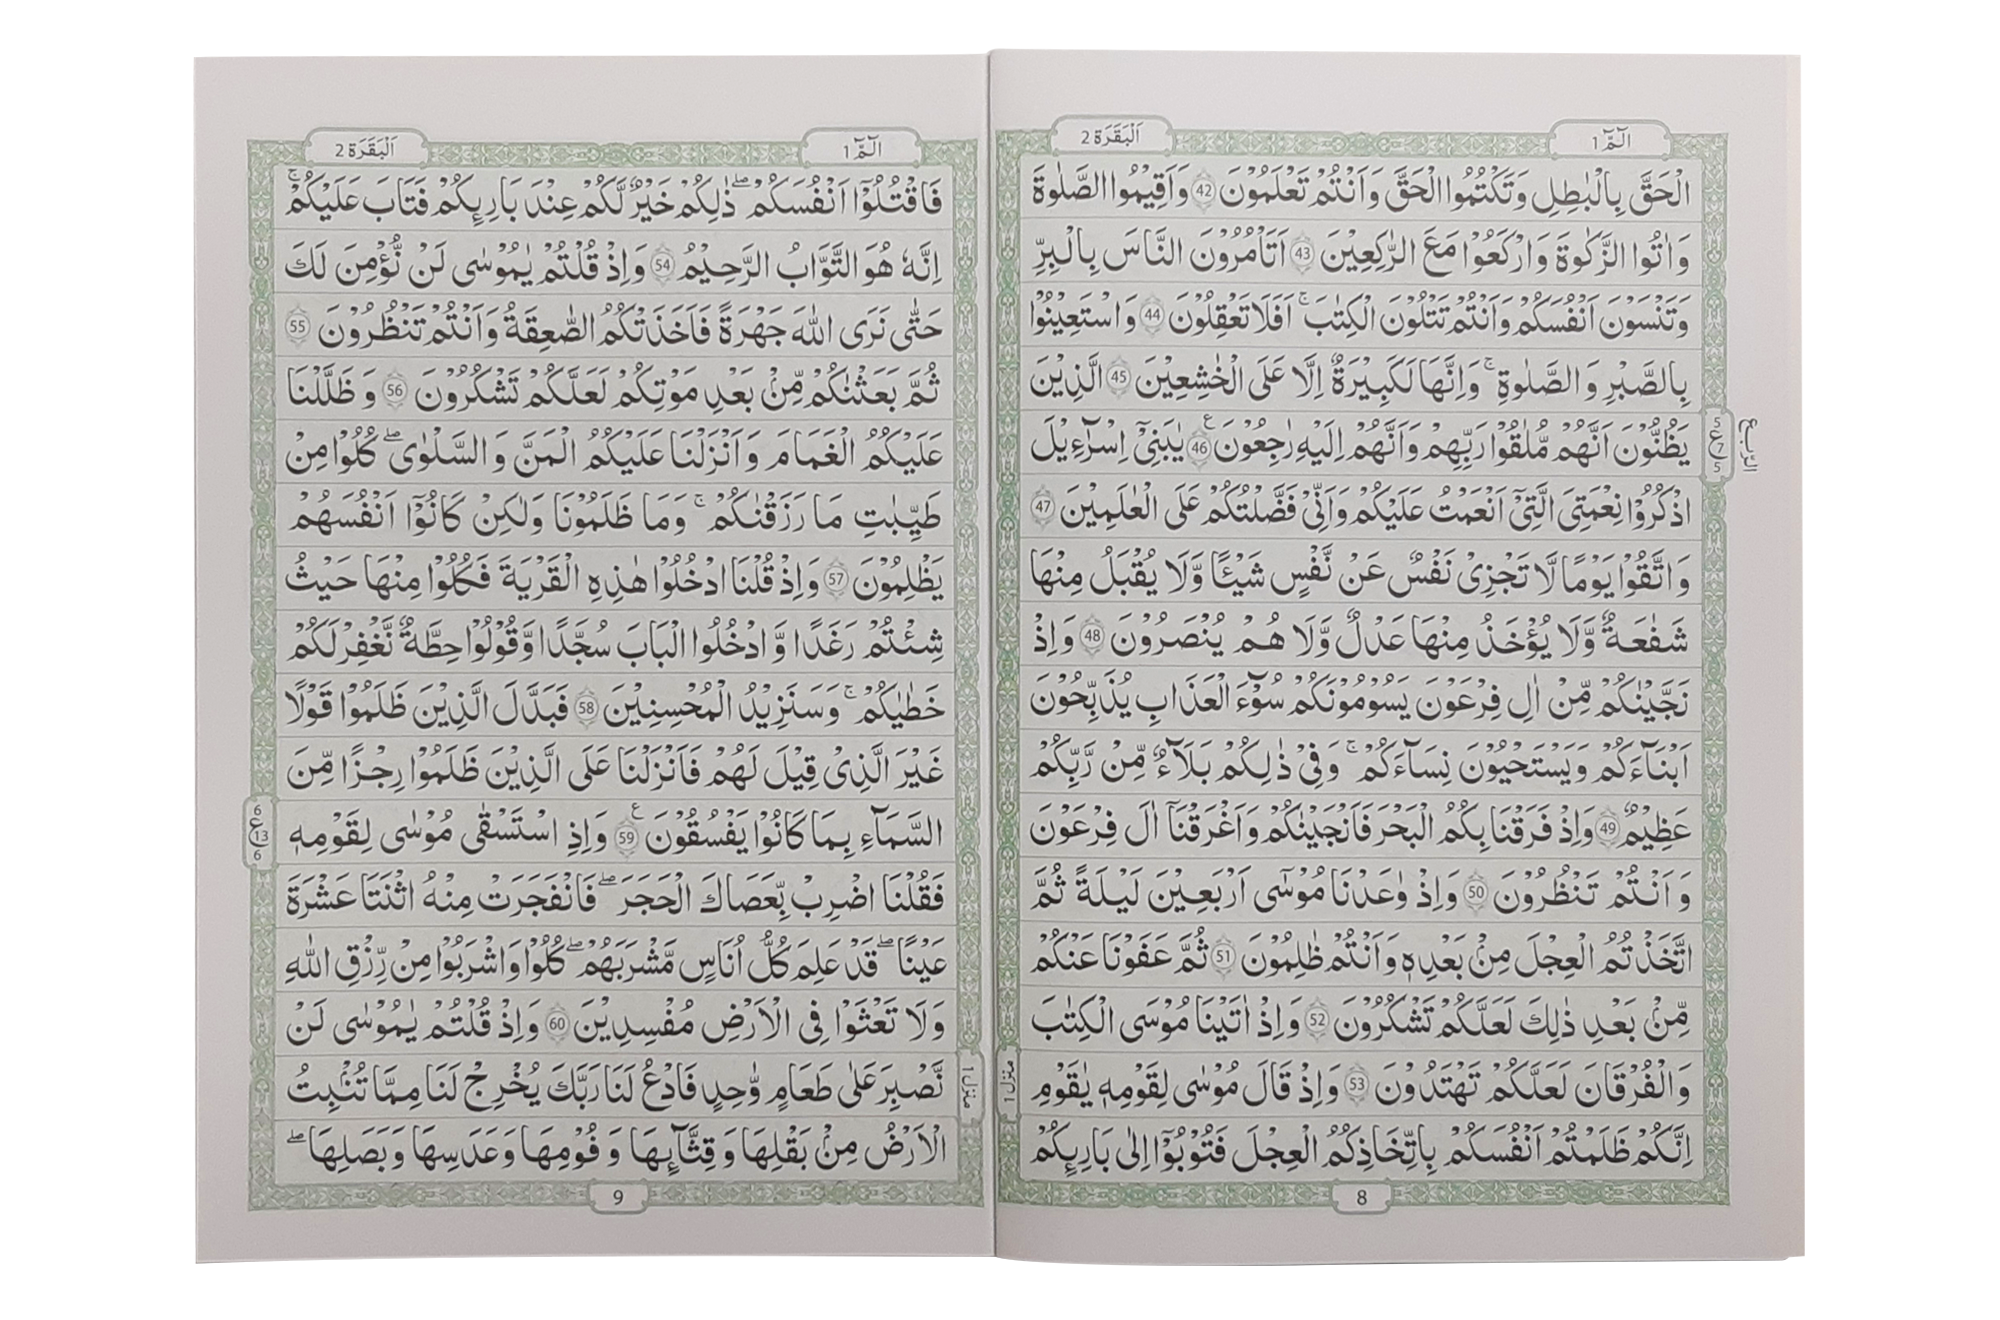 الٓمّٓ 1
اَلْبَقَرَة 2
الْحَقَّ بِالْبٰطِلِ وَتَكْتُمُوا الْحَقَّ وَاَنْتُمْ تَعْلَمُوْنَ 42 وَاَقِيْمُوا الصَّلٰوةَ
وَاٰتُوا الزَّكٰوةَ وَارْكَعُوْا مَعَ الرّٰكِعِيْنَ 43 اَتَاْمُرُوْنَ النَّاسَ بِالْبِرِّ
وَتَنْسَوْنَ اَنْفُسَكُمْ وَاَنْتُمْ تَتْلُوْنَ الْكِتٰبَ ۚ اَفَلَا تَعْقِلُوْنَ 44 وَاسْتَعِيْنُوْا
بِالصَّبْرِ وَالصَّلٰوةِ ۚ وَاِنَّهَا لَكَبِيْرَةٌ اِلَّا عَلَى الْخٰشِعِيْنَ 45 الَّذِيْنَ
يَظُنُّوْنَ اَنَّهُمْ مُّلٰقُوْا رَبِّهِمْ وَاَنَّهُمْ اِلَيْهِ رٰجِعُوْنَ 46 ع يٰبَنِىْٓ اِسْرَآءِيْلَ
اذْكُرُوْا نِعْمَتِىَ الَّتِىْٓ اَنْعَمْتُ عَلَيْكُمْ وَاَنِّىْ فَضَّلْتُكُمْ عَلَى الْعٰلَمِيْنَ 47
وَاتَّقُوْا يَوْمًا لَّا تَجْزِىْ نَفْسٌ عَنْ نَّفْسٍ شَيْـًٔا وَّلَا يُقْبَلُ مِنْهَا
شَفٰعَةٌ وَّلَا يُؤْخَذُ مِنْهَا عَدْلٌ وَّلَا هُمْ يُنْصَرُوْنَ 48 وَاِذْ
نَجَّيْنٰكُمْ مِّنْ اٰلِ فِرْعَوْنَ يَسُوْمُوْنَكُمْ سُوْٓءَ الْعَذَابِ يُذَبِّحُوْنَ
اَبْنَآءَكُمْ وَيَسْتَحْيُوْنَ نِسَآءَكُمْ ۚ وَفِىْ ذٰلِكُمْ بَلَآءٌ مِّنْ رَّبِّكُمْ
عَظِيْمٌ 49 وَاِذْ فَرَقْنَا بِكُمُ الْبَحْرَ فَاَنْجَيْنٰكُمْ وَاَغْرَقْنَآ اٰلَ فِرْعَوْنَ
وَاَنْتُمْ تَنْظُرُوْنَ 50 وَاِذْ وٰعَدْنَا مُوْسٰٓى اَرْبَعِيْنَ لَيْلَةً ثُمَّ
اتَّخَذْتُمُ الْعِجْلَ مِنْۢ بَعْدِهٖ وَاَنْتُمْ ظٰلِمُوْنَ 51 ثُمَّ عَفَوْنَا عَنْكُمْ
مِّنْۢ بَعْدِ ذٰلِكَ لَعَلَّكُمْ تَشْكُرُوْنَ 52 وَاِذْ اٰتَيْنَا مُوْسَى الْكِتٰبَ
وَالْفُرْقَانَ لَعَلَّكُمْ تَهْتَدُوْنَ 53 وَاِذْ قَالَ مُوْسٰى لِقَوْمِهٖ يٰقَوْمِ
اِنَّكُمْ ظَلَمْتُمْ اَنْفُسَكُمْ بِاتِّخَاذِكُمُ الْعِجْلَ فَتُوْبُوْٓا اِلٰى بَارِئِكُمْ
الرّبع
5
ع
7
5
منزل 1
8
الٓمّٓ 1
اَلْبَقَرَة 2
فَاقْتُلُوْٓا اَنْفُسَكُمْ ۖ ذٰلِكُمْ خَيْرٌ لَّكُمْ عِنْدَ بَارِئِكُمْ فَتَابَ عَلَيْكُمْ ۚ
اِنَّهٗ هُوَ التَّوَّابُ الرَّحِيْمُ 54 وَاِذْ قُلْتُمْ يٰمُوْسٰى لَنْ نُّؤْمِنَ لَكَ
حَتّٰى نَرَى اللّٰهَ جَهْرَةً فَاَخَذَتْكُمُ الصّٰعِقَةُ وَاَنْتُمْ تَنْظُرُوْنَ 55
ثُمَّ بَعَثْنٰكُمْ مِّنْۢ بَعْدِ مَوْتِكُمْ لَعَلَّكُمْ تَشْكُرُوْنَ 56 وَظَلَّلْنَا
عَلَيْكُمُ الْغَمَامَ وَاَنْزَلْنَا عَلَيْكُمُ الْمَنَّ وَالسَّلْوٰى ۖ كُلُوْا مِنْ
طَيِّبٰتِ مَا رَزَقْنٰكُمْ ۚ وَمَا ظَلَمُوْنَا وَلٰكِنْ كَانُوْٓا اَنْفُسَهُمْ
يَظْلِمُوْنَ 57 وَاِذْ قُلْنَا ادْخُلُوْا هٰذِهِ الْقَرْيَةَ فَكُلُوْا مِنْهَا حَيْثُ
شِئْتُمْ رَغَدًا وَّادْخُلُوا الْبَابَ سُجَّدًا وَّقُوْلُوْا حِطَّةٌ نَّغْفِرْ لَكُمْ
خَطٰيٰكُمْ ۚ وَسَنَزِيْدُ الْمُحْسِنِيْنَ 58 فَبَدَّلَ الَّذِيْنَ ظَلَمُوْا قَوْلًا
غَيْرَ الَّذِىْ قِيْلَ لَهُمْ فَاَنْزَلْنَا عَلَى الَّذِيْنَ ظَلَمُوْا رِجْزًا مِّنَ
السَّمَآءِ بِمَا كَانُوْا يَفْسُقُوْنَ 59 ع وَاِذِ اسْتَسْقٰى مُوْسٰى لِقَوْمِهٖ
فَقُلْنَا اضْرِبْ بِّعَصَاكَ الْحَجَرَ ۖ فَانْفَجَرَتْ مِنْهُ اثْنَتَا عَشْرَةَ
عَيْنًا ۖ قَدْ عَلِمَ كُلُّ اُنَاسٍ مَّشْرَبَهُمْ ۖ كُلُوْا وَاشْرَبُوْا مِنْ رِّزْقِ اللّٰهِ
وَلَا تَعْثَوْا فِى الْاَرْضِ مُفْسِدِيْنَ 60 وَاِذْ قُلْتُمْ يٰمُوْسٰى لَنْ
نَّصْبِرَ عَلٰى طَعَامٍ وَّاحِدٍ فَادْعُ لَنَا رَبَّكَ يُخْرِجْ لَنَا مِمَّا تُنْۢبِتُ
الْاَرْضُ مِنْۢ بَقْلِهَا وَقِثَّآئِهَا وَفُوْمِهَا وَعَدَسِهَا وَبَصَلِهَا ۖ
6
ع
13
6
منزل 1
9